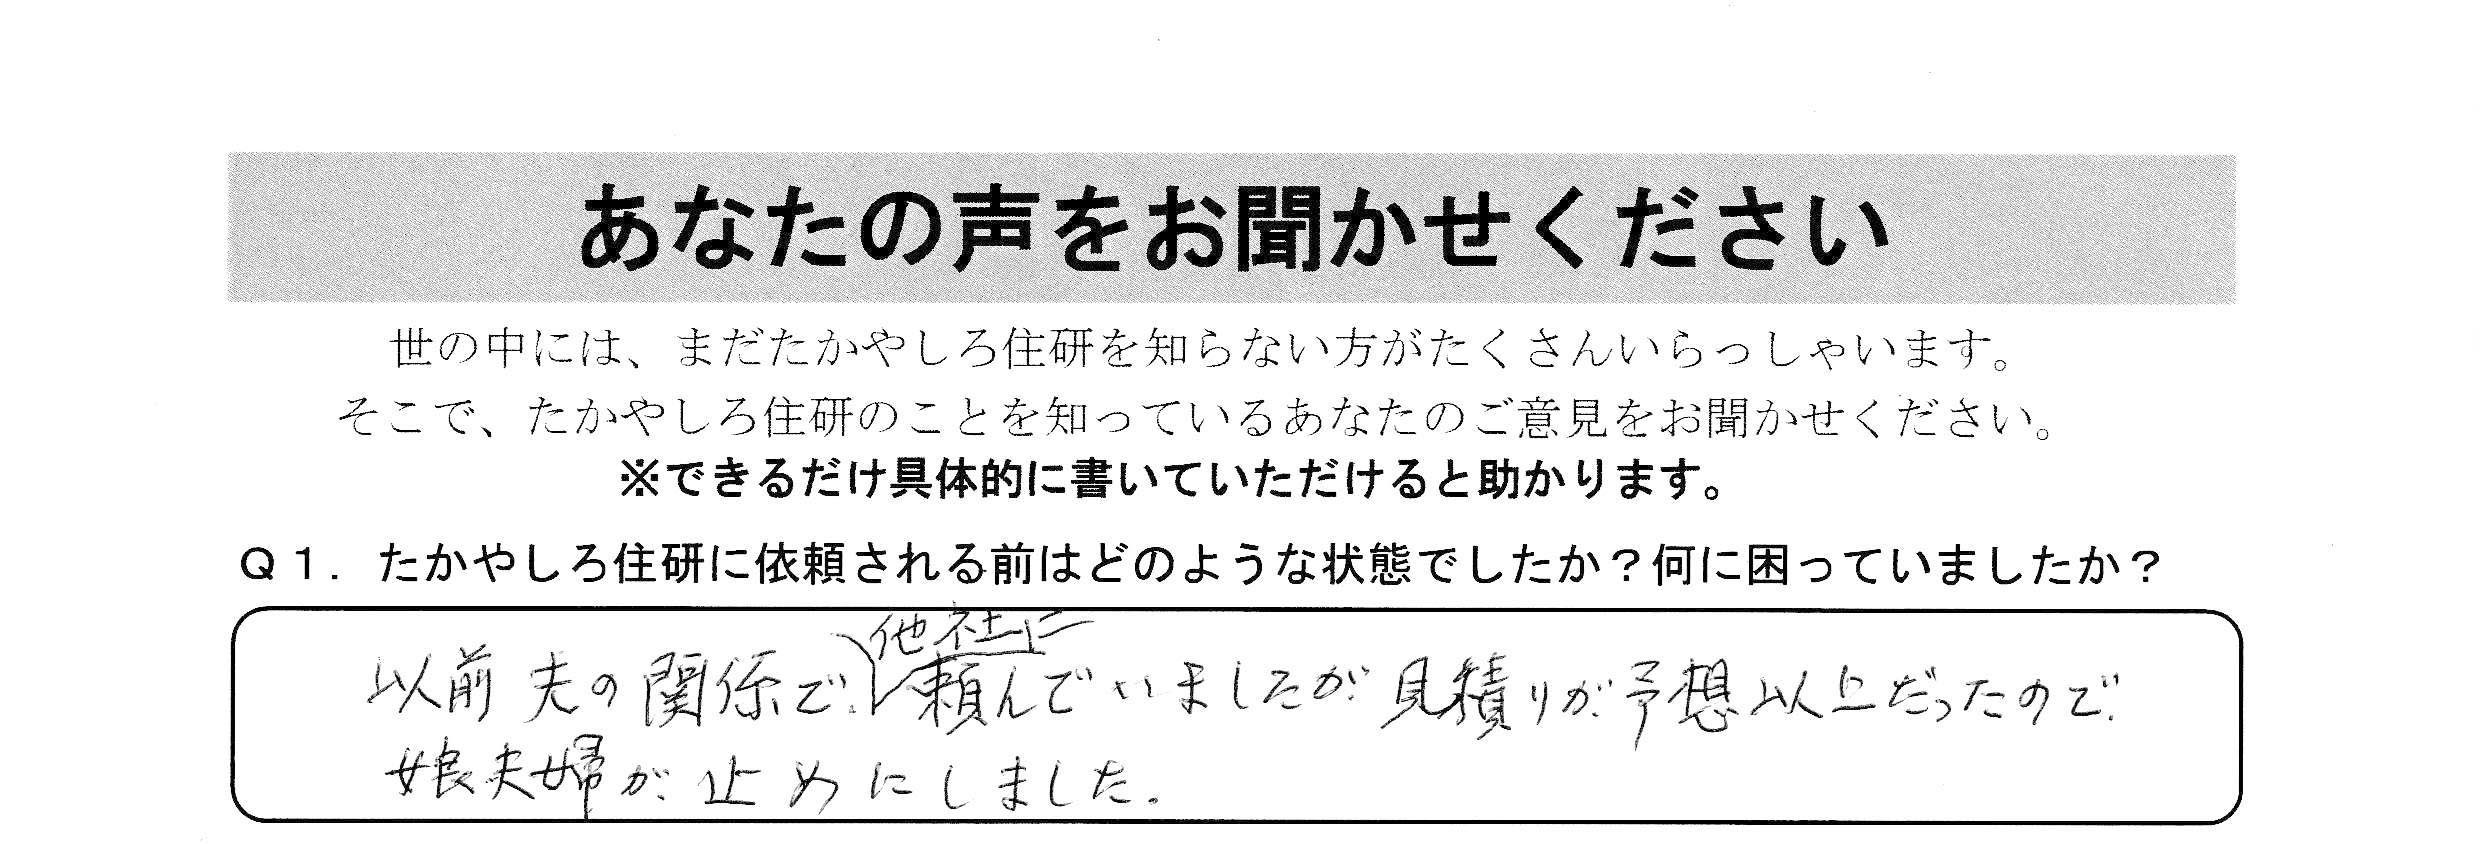 あなたの声をお聞かせください
世の中には、まだたかやしろ住研を知らない方がたくさんいらっしゃいます。
そこで、たかやしろ住研のことを知っているあなたのご意見をお聞かせください。
※できるだけ具体的に書いていただけると助かります。
Ｑ１．たかやしろ住研に依頼される前はどのような状態でしたか？何に困っていましたか？
以前夫の関係で他社に頼んでいましたが見積りが予想以上だったので
娘夫婦が止めにしました。